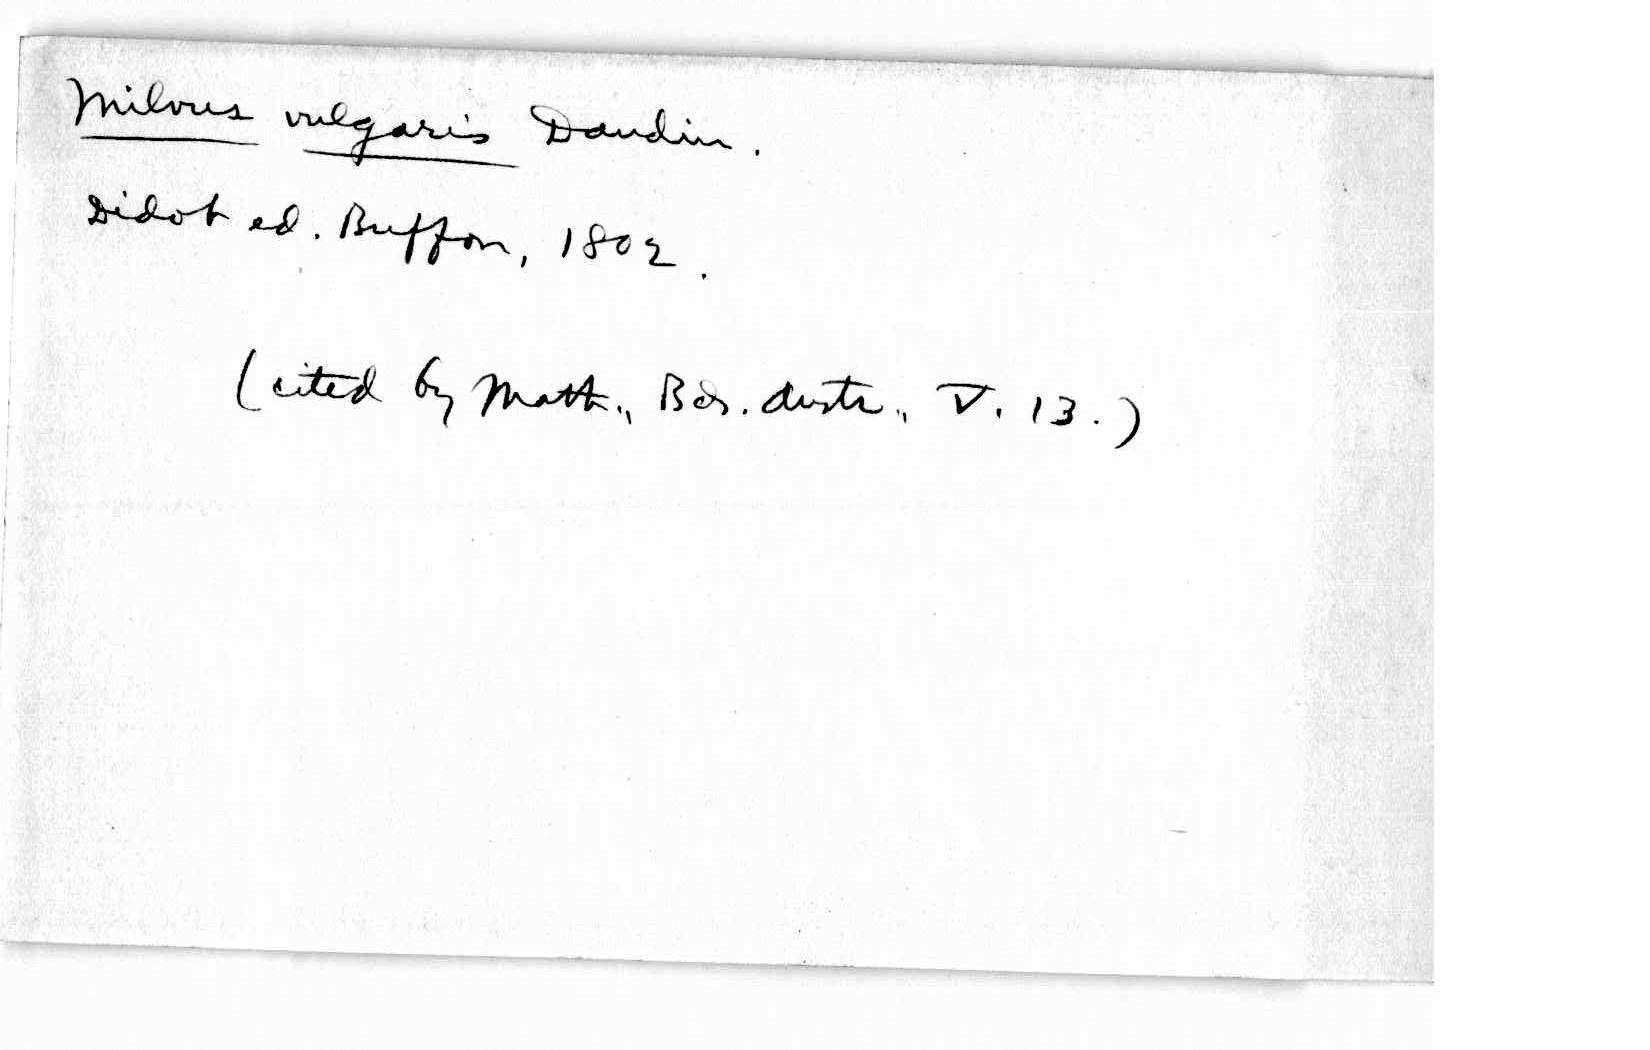 Milvus vulgaris Daudin.
Didot ed. Buffon, 1802.
(cited by Math., Bds. Austr., V. 13.)